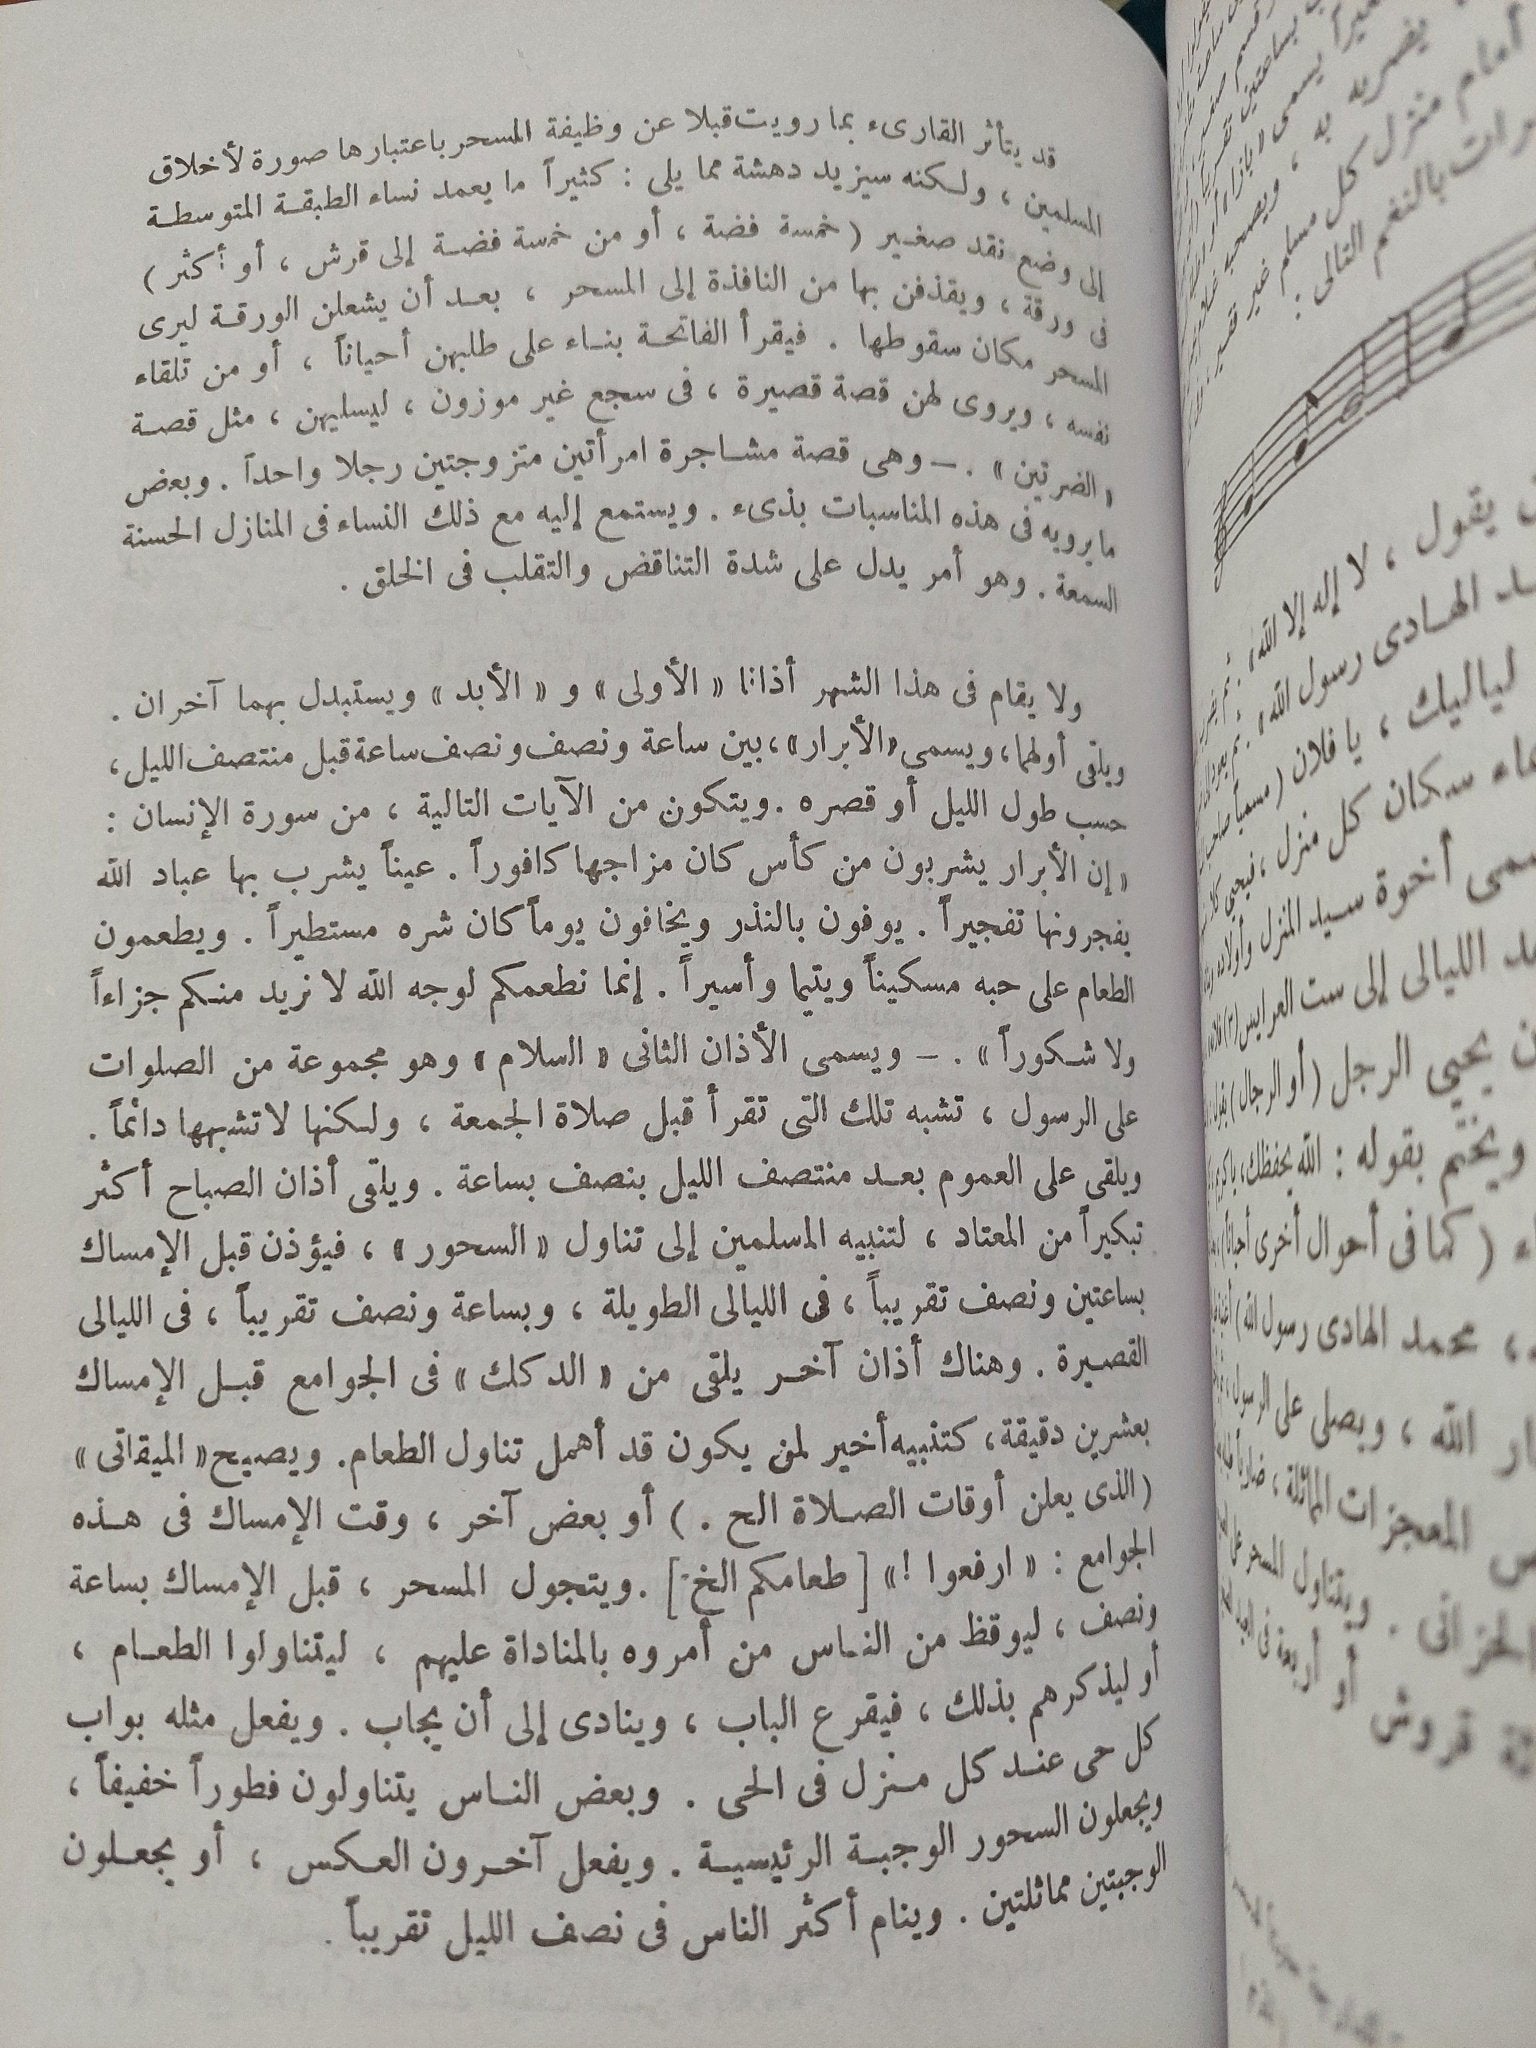 قد يتأثر القارىء بما رويت قبلا عن وظيفة المسحر باعتبارها صورة لأخلاق
المسلمين ، ولكنه سيزيد دهشة مما يلى : كثيراً ما يعمد نساء الطبقة المتوسطة
إلى وضع نقد صغير ( خمسة فضة ، أو من خمسة فضة إلى قرش ، أو أكثر )
فى ورقة ، ويقذفن بها من النافذة إلى المسحر ، بعد أن يشعلن الورقة ليرى
المسحر مكان سقوطها . فيقرأ الفاتحة بناء على طلبهن أحياناً ، أو من تلقاء
نفسه ، ويروى لهن قصة قصيرة ، فى سجع غير موزون ، ليسليهن ، مثل قصة
« الضرتين » . — وهى قصة مشاجرة امرأتين متزوجتين رجلا واحداً . وبعض
ما يرويه فى هذه المناسبات بذىء . ويستمع إليه مع ذلك النساء فى المنازل الحسنة
السمعة . وهو أمر يدل على شدة التناقض والتقلب فى الخلق .
ولا يقام فى هذا الشهر أذانا « الأولى » و « الأبد » ويستبدل بهما آخران .
ويلقى أولهما ، ويسمى « الأبرار » ، بين ساعة ونصف ونصف ساعة قبل منتصف الليل ،
حسب طول الليل أو قصره . ويتكون من الآيات التالية ، من سورة الإنسان :
« إن الأبرار يشربون من كأس كان مزاجها كافوراً . عيناً يشرب بها عباد الله
يفجرونها تفجيراً . يوفون بالنذر ويخافون يوماً كان شره مستطيراً . ويطعمون
الطعام على حبه مسكيناً ويتيما وأسيراً . إنما نطعمكم لوجه الله لا نريد منكم جزاءاً
ولا شكوراً » . — ويسمى الأذان الثانى « السلام » وهو مجموعة من الصلوات
على الرسول ، تشبه تلك التى تقرأ قبل صلاة الجمعة ، ولكنها لا تشبهها دائماً .
ويلقى على العموم بعد منتصف الليل بنصف بساعة . ويلقى أذان الصباح أكثر
تبكيراً من المعتاد ، لتنبيه المسلمين إلى تناول « السحور » ، فيؤذن قبل الإمساك
بساعتين ونصف تقريباً ، فى الليالى الطويلة ، وبساعة ونصف تقريباً ، فى الليالى
القصيرة . وهناك أذان آخر يلقى من « الدكك » فى الجوامع قبل الإمساك
بعشرين دقيقة ، كتنبيه أخير لمن يكون قد أهمل تناول الطعام . ويصيح « الميقاتى »
( الذى يعلن أوقات الصلاة الخ . ) أو بعض آخر ، وقت الإمساك فى هذه
الجوامع : « ارفعوا ! » [ طعامكم الخ . ] . ويتجول المسحر ، قبل الإمساك بساعة
ونصف ، ليوقظ من الناس من أمروه بالمناداة عليهم ، ليتناولوا الطعام ،
أو ليذكرهم بذلك ، فيقرع الباب ، وينادى إلى أن يجاب . ويفعل مثله بواب
كل حى عند كل منزل فى الحى . وبعض الناس يتناولون فطوراً خفيفاً ،
ويجعلون السحور الوجبة الرئيسية . ويفعل آخرون العكس ، أو يجعلون
الوجبتين مماثلتين . وينام أكثر الناس فى نصف الليل تقريباً .
أمام منزل كل مسلم
بالنغم التالى :
يقول ، لا إله إلا الله
الهادى رسول الله
لياليك ، يا فلان
سكان كل منزل ،
أخوة سيد المنزل
الليالى إلى ست العرايس (٣)
يحيي الرجل ( أو الرجال )
ويختم بقوله : الله يحفظك ،
( كما فى أحوال أخرى أحياناً )
، محمد الهادى رسول الله
الله ، ويصلى على الرسول ،
المعجزات الماثلة ،
. ويتناول المسحر
قروش أو أربعة فى